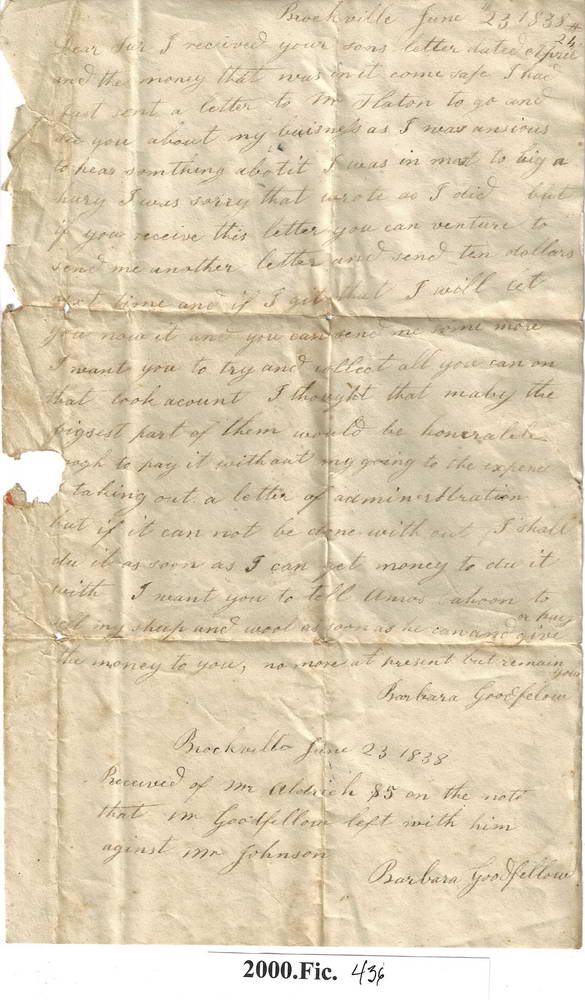 Brockville June 23 1838
Dear Sur I recieved your sons letter dated April 24th
and the money that was in it come safe I had
just sent a letter to Mr Slaton to go and
see you about my buisness as I was ansious
to hear somthing abot it I was in most to big a
hury I was sorry that wrote as I did but
if you receive this letter you can venture to
send me another letter and send ten dollars
next time and if I git that I will let
you now it and you can send me some more
I want you to try and collect all you can on
that book acount I thought that maby the
bigest part of them would be honerable
nogh to pay it without my going to the expence
taking out a letter of administration
but if it can not be done with out I shall
du it as soon as I can get money to du it
with I want you to tell Amos cahoon to
sell my sheep and wool as soon as he can and give
or pay
the money to you, no more at present but remain
your
Barbara Goodfelow
Brockville June 23 1838
Received of Mr Aldrich $5 on the note
that Mr Goodfellow left with him
aginst Mr Johnson
Barbara Goodfellow
2000.Fic. 436